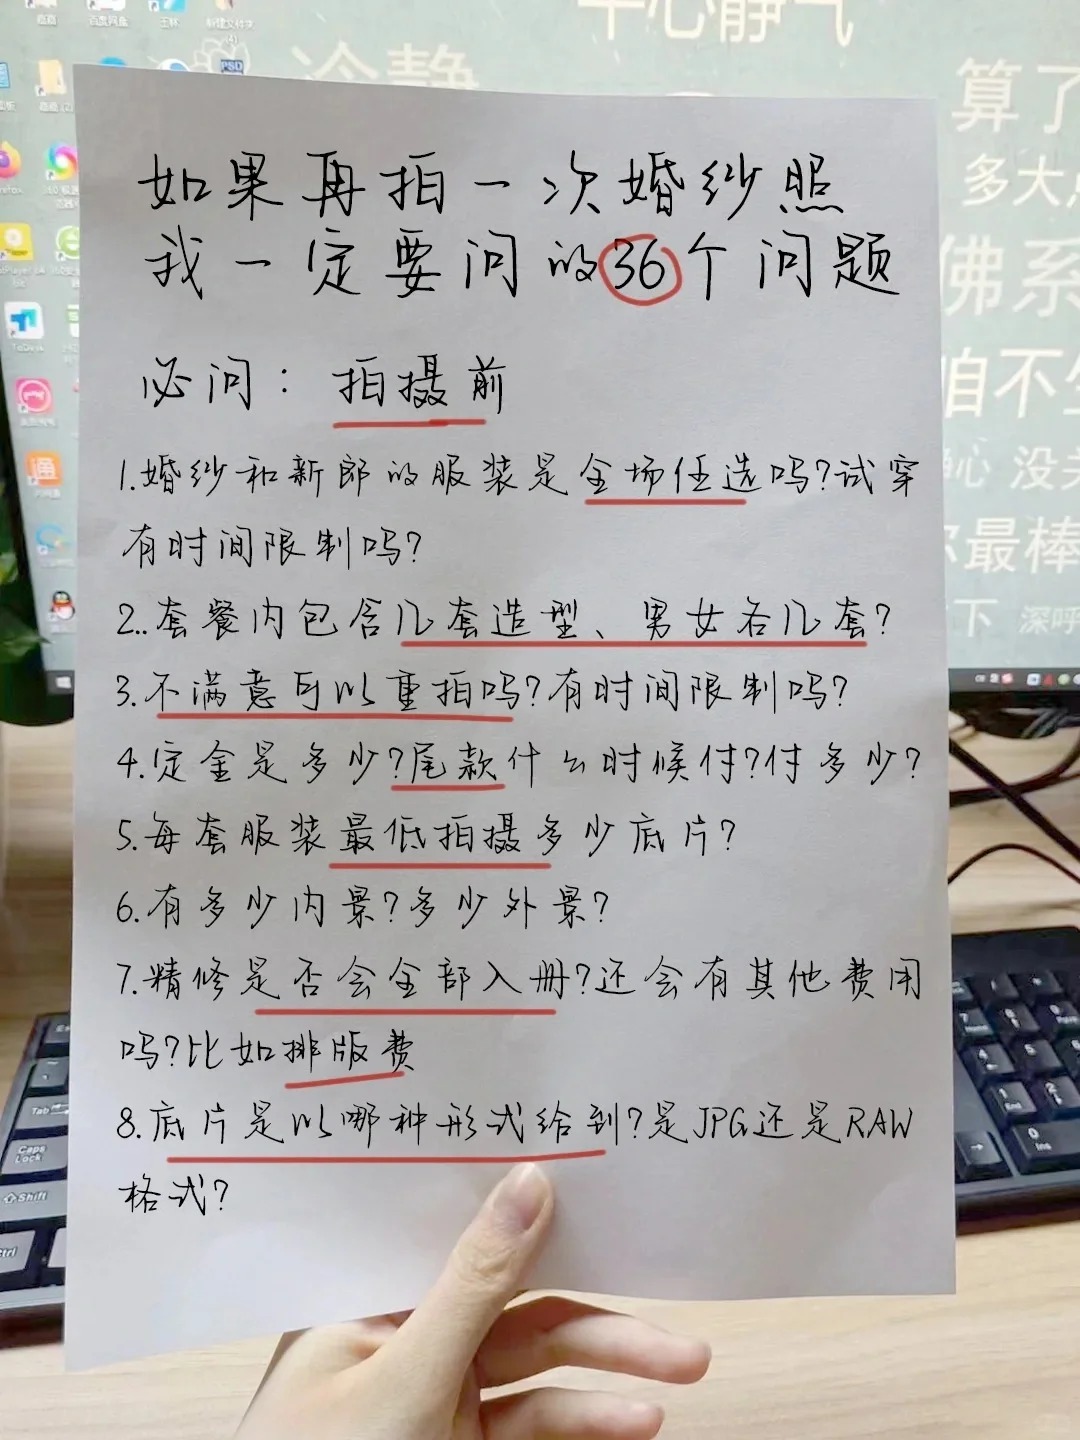 平心静气
冷静
算了
多大
佛系
咱不
没
最棒
下 深呼
PSD
如果再拍一次婚纱照
我一定要问的36个问题
必问：拍摄前
1.婚纱和新郎的服装是全场任选吗?试穿
有时间限制吗?
2..套餐内包含几套造型、男女各几套?
3.不满意可以重拍吗?有时间限制吗?
4.定金是多少?尾款什么时候付?付多少?
5.每套服装最低拍摄多少底片?
6.有多少内景?多少外景?
7.精修是否会全部入册?还会有其他费用
吗?比如排版费
8.底片是以哪种形式给到?是JPG还是RAW
格式?
Tab
Caps
Lock
Shift
Ctrl